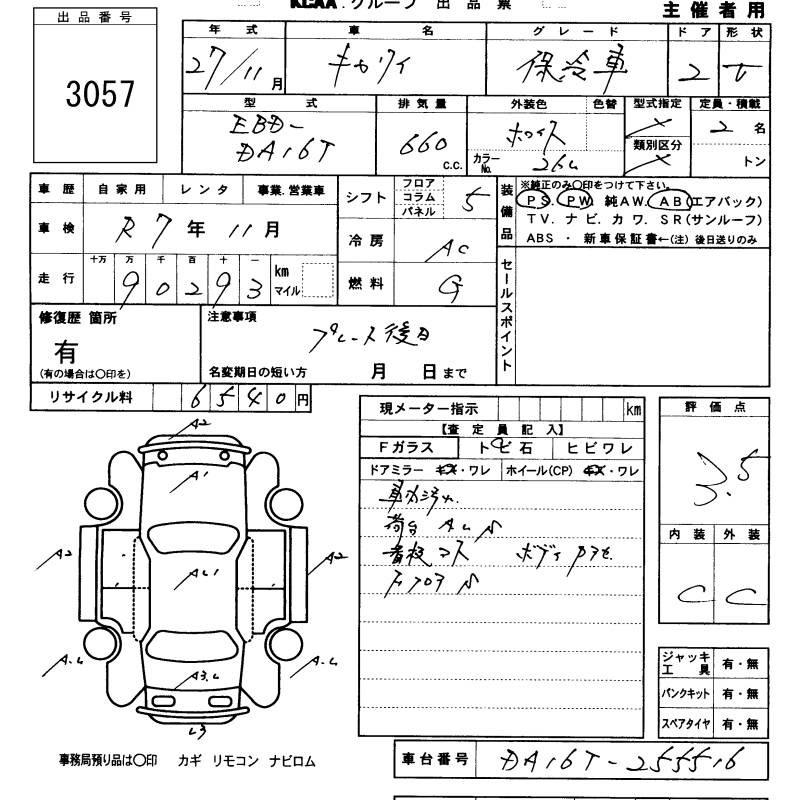 KCAA.グループ 出品票
主催者用
出品番号
3057
年式 車名 グレード ドア 形状
27/11月 キャリイ 保冷車 2 T
型式 排気量 外装色 色替 型式指定 定員・積載
EBD-DA16T 660 C.C. ホワイト カラーNo. 26U 類別区分 2名 トン
車歴 自家用 レンタ 事業.営業車
車検 R7年11月
走行 十万 万 千 百 十 一 km マイル
90293
シフト フロア コラム パネル 5
冷房 AC
燃料 G
装備品 ※純正のみ〇印をつけて下さい。
PS. PW 純AW. AB(エアバック)
TV. ナビ. カワ. SR(サンルーフ)
ABS ・ 新車保証書←(注) 後日送りのみ
セールスポイント
修復歴 箇所
有
(有の場合は〇印を)
注意事項
プレート後日
名変期日の短い方 月 日まで
リサイクル料 6540円
現メーター指示 km
【査定員記入】
Fガラス トビ石 ヒビワレ
ドアミラー キズ・ワレ ホイール(CP) キズ・ワレ
車内汚れ
荷台 AUS
看板コス ボディ
下フロアS
評価点
3.5
内装 外装
C C
A2
A1
A2 AU1 A2
A.U A.U
A3.U
U3
ジャッキ工具 有・無
パンクキット 有・無
スペアタイヤ 有・無
事務局預り品は〇印 カギ リモコン ナビロム
車台番号 DA16T-255516